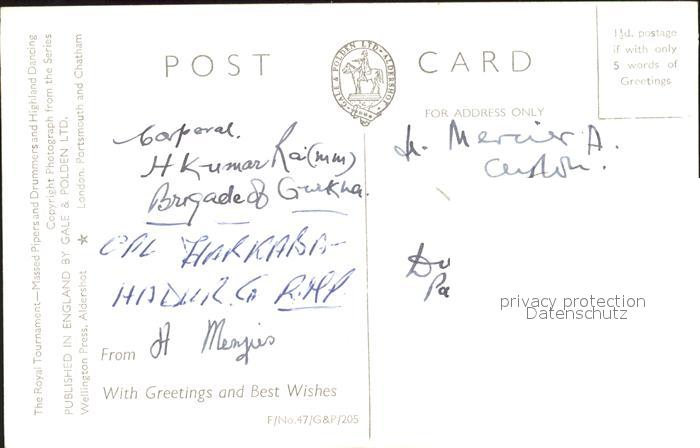 The Royal Tournament.—Massed Pipers and Drummers and Highland Dancing
Copyright Photograph from the Series
PUBLISHED IN ENGLAND BY GALE & POLDEN LTD.
Wellington Press, Aldershot ★ London, Portsmouth and Chatham
POST CARD
GALE & POLDEN LTD · ALDERSHOT
1½d. postage
if with only
5 words of
Greetings
FOR ADDRESS ONLY
Corporal.
H Kumar Rai (mm)
Brigade of Gurkha.
CPL HARKABA-
HADUR. G
From H Menzies
With Greetings and Best Wishes
F/No.47/G&P/205
Mercier A.
Du
Pa
privacy protection
Datenschutz